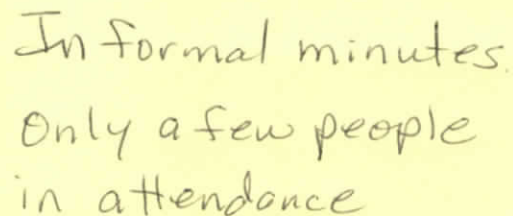 Informal minutes.
Only a few people
in attendance